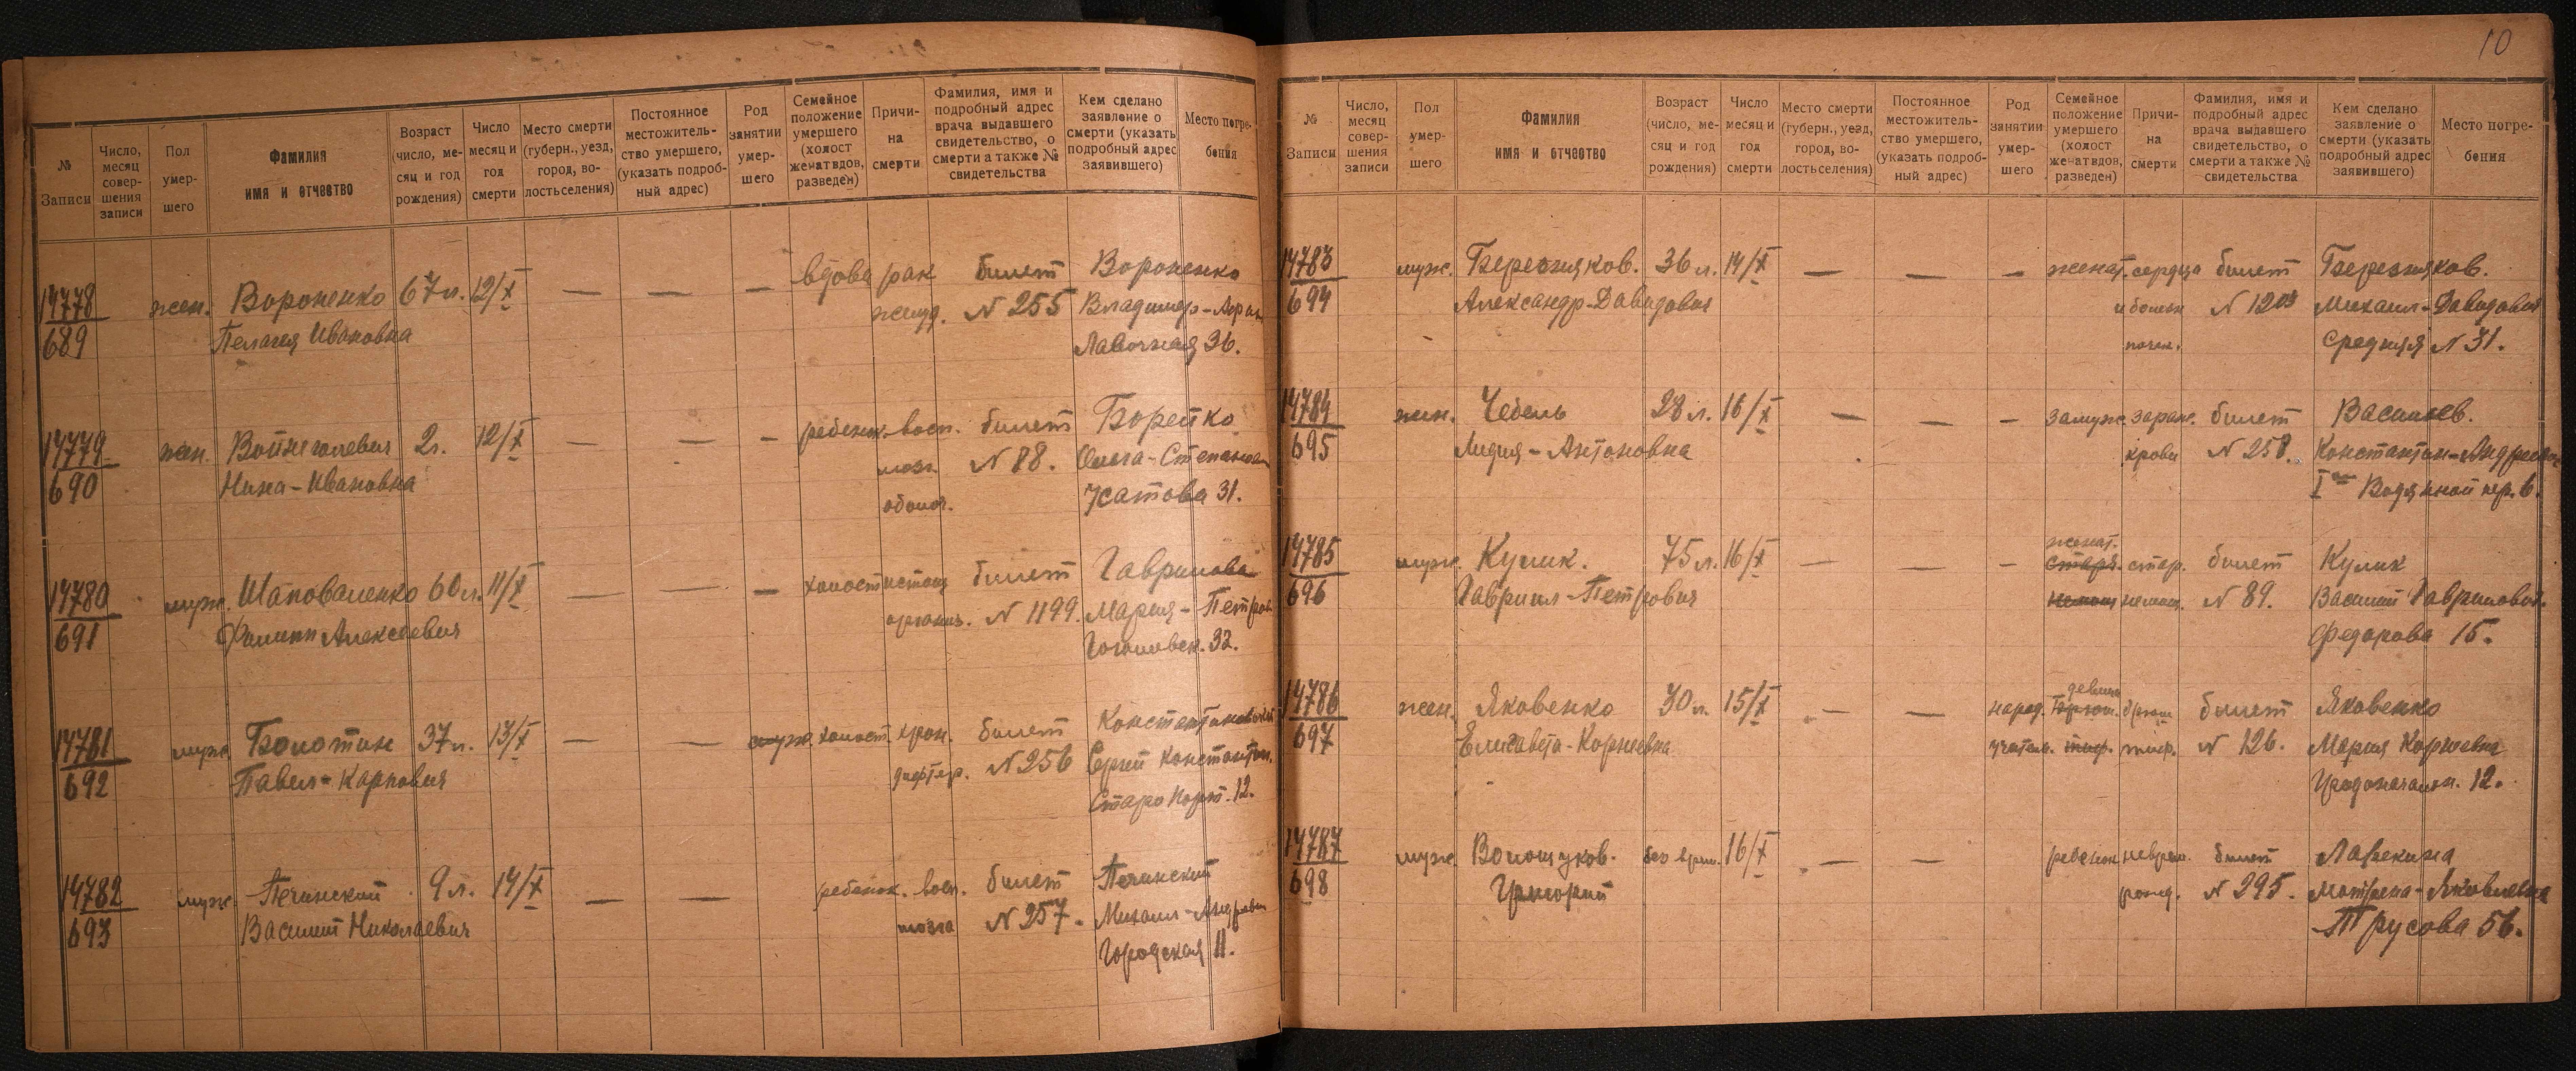 10
№ Записи
Число, месяц совершения записи
Пол умершего
Фамилия имя и отчество
Возраст (число, месяц и год рождения)
Число месяц и год смерти
Место смерти (губерн., уезд, город, волость селения)
Постоянное местожительство умершего, (указать подробный адрес)
Род занятии умершего
Семейное положение умершего (холост женат вдов, разведен)
Причина смерти
Фамилия, имя и подробный адрес врача выдавшего свидетельство, о смерти а также № свидетельства
Кем сделано заявление о смерти (указать подробный адрес заявившего)
Место погребения
14778 жен. Вороненко 67 л. 12/X — — — вдова рак билет Вороненко
689 Пелагея Ивановна желуд. N 255 Владимир
Лавочная 36.
14779 жен. 2 г. 12/X — — — ребенок восп. билет
690 Нина-Ивановна мозг. N 88. Ольга
оболоч. Усатова 31.
14780 муж. Шаповаленко 60 л. 11/X — — — холост истощ билет Гаврилова
691 Филипп Алексеевич организ. N 1199. Мария-Петров
Гоголевск. 32.
14781 муж. Болотин 37 л. 13/X — — холост хрон. билет
692 Павел-Карпович N 256
Старо Порт. 12.
14782 муж. Печинский 9 л. 14/X — — ребенок. восп. билет Печинский
693 Василий Николаевич мозга N 257. Михаил
Городская 11.
№ Записи
Число, месяц совершения записи
Пол умершего
Фамилия имя и отчество
Возраст (число, месяц и год рождения)
Число месяц и год смерти
Место смерти (губерн., уезд, город, волость селения)
Постоянное местожительство умершего, (указать подробный адрес)
Род занятии умершего
Семейное положение умершего (холост женат вдов, разведен)
Причина смерти
Фамилия, имя и подробный адрес врача выдавшего свидетельство, о смерти а также № свидетельства
Кем сделано заявление о смерти (указать подробный адрес заявившего)
Место погребения
14783 муж. Березняков. 36 л. 14/X — — — женат. сердца билет Березняков.
694 Александр-Давидович и болезн Михаил-Давидович
почек. Средняя N 31.
14784 жен. Чебель 28 л. 16/X — — — замуж. зараж. билет Васильев.
695 Лидия-Антоновна крови N 258. Константин-Андреевич
I Водяной пер. 6.
женат.
14785 муж. Кулик. 75 л. 16/X — — — старч. стар. билет Кулик
696 Гавриил-Петрович немощ немощ. N 89. Василий Гаврилович.
Федорова 15.
девица
14786 жен. Яковенко 30 л. 15/X — — народ. брюш. брюш билет Яковенко
697 Елисавета-Корнеевна учитель. тиф. тиф. N 126. Мария Корнеевна
Градоначальн. 12.
14787 муж. Волощуков. 16/X — — ребенок неврем. билет
698 Григорий рожд. N 295. Матрена-Яковлевна
Трусова 56.